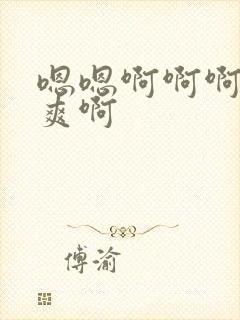 嗯嗯啊啊啊
爽啊
傅渝